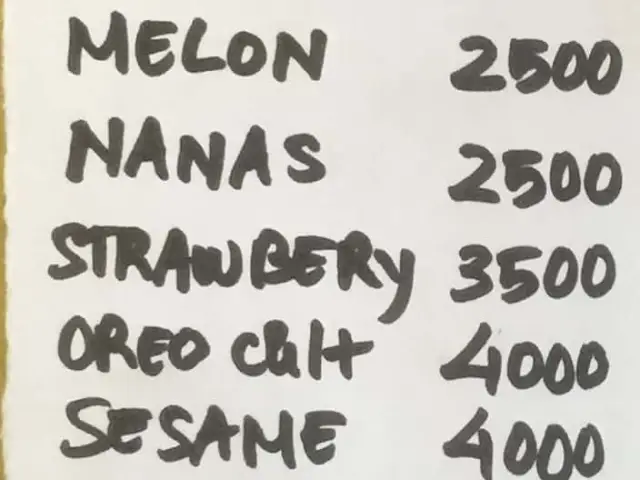 MELON 2500
NANAS 2500
STRAWBERY 3500
OREO 4000
SESAME 4000